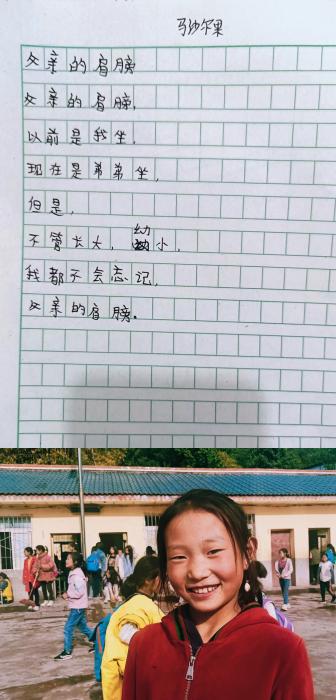 马沙尔果
父亲的肩膀
父亲的肩膀，
以前是我坐，
现在是弟弟坐，
但是，
不管长大，幼小，
我都不会忘记，
父亲的肩膀。